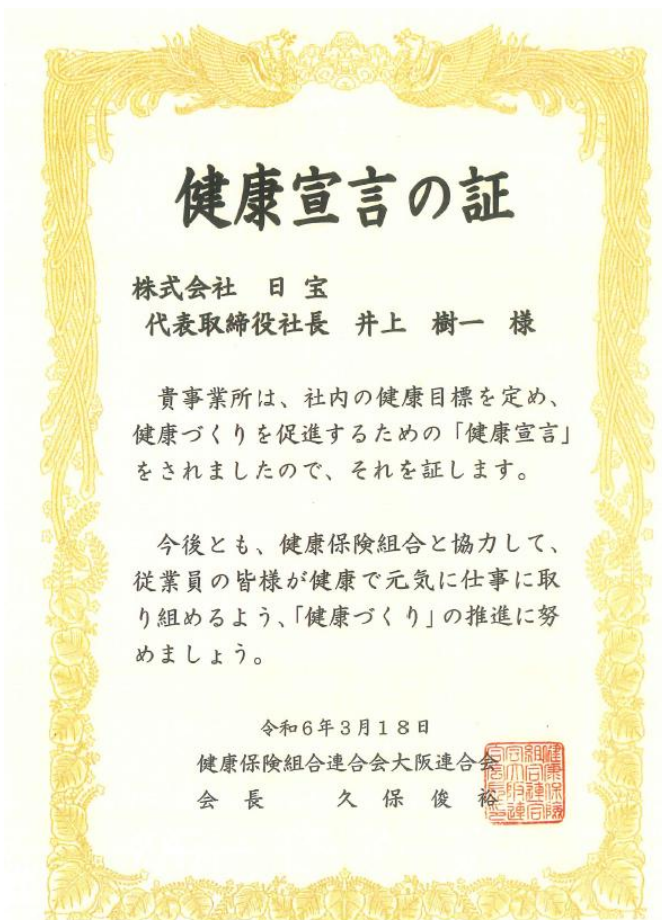 健康宣言の証
株式会社 日宝
代表取締役社長 井上 樹一 様
貴事業所は、社内の健康目標を定め、
健康づくりを促進するための「健康宣言」
をされましたので、それを証します。
今後とも、健康保険組合と協力して、
従業員の皆様が健康で元気に仕事に取
り組めるよう、「健康づくり」の推進に努
めましょう。
令和6年3月18日
健康保険組合連合会大阪連合会
会長 久保俊裕